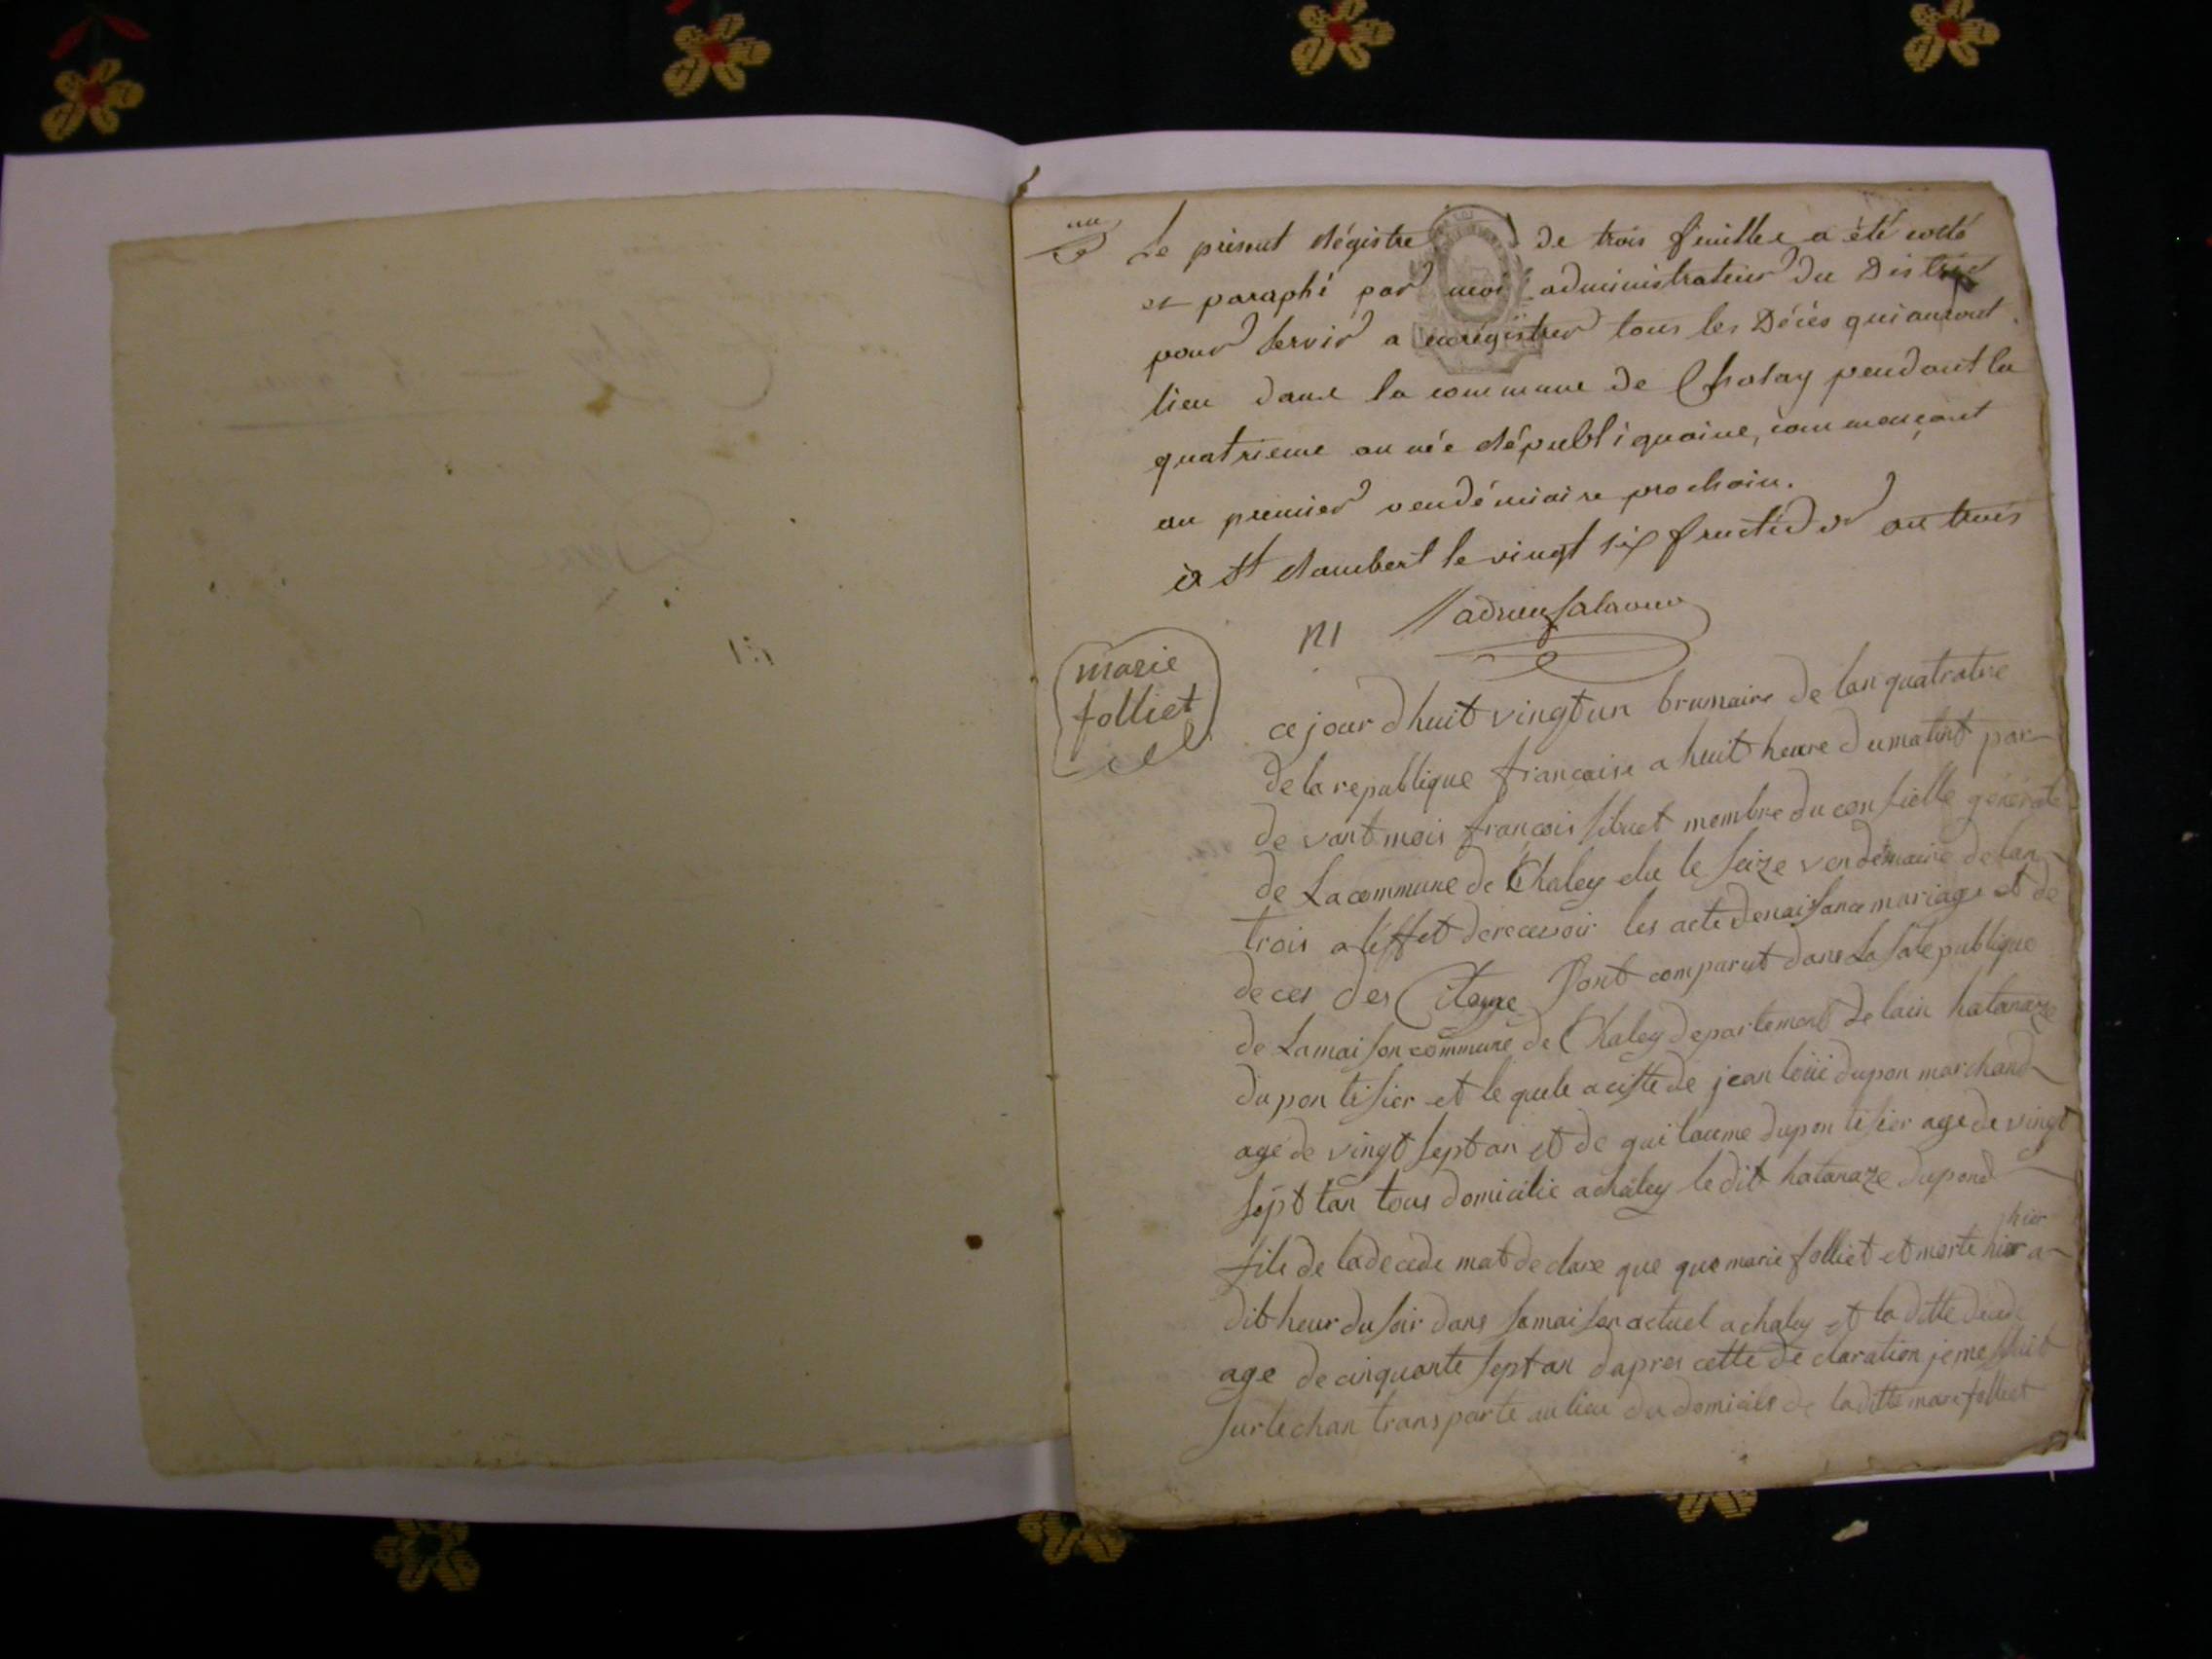 un
Le présent Régistre de trois feuilles a été coté
et paraphé par moi administrateur du District
pour servir a enrégistrer tous les Décès qui auront
lieu dans la commune de Chaley pendant la
quatrieme année républiquaine, commençant
au premier vendémiaire prochain.
à St Rambert le vingt six fructidor an trois
N1
marie
folliet
ce jour dhuit vingt un brumaire de lan quatratre
de la republique francaise a huit heure du matint par
devant mois françois sibuet membre du consielle generale
de La commune de Chaley elu le seize vendemaire de lan
trois a leffet de recevoir les acte de naisance mariage et de
deces des Citoyne Sont comparut dans La sale publique
de La maison commune de Chaley departement de lain hatanaze
dupon tisier et le quele aciste de jean loüi dupon marchand
agé de vingt sept an et de guilaume dupon tisier age de vingt
sept tan tous domicilie a chaley le dit hatanaze dupond
hier
fils de la decede mat declare que que marie folliet et morte hier a
dit heur du soir dans sa maison actuel a chaley et la ditte decede
age de cinquante sept an dapres cette de claration je me suit
sur le chan transporte au lieu du domicile de la ditte marie folliet